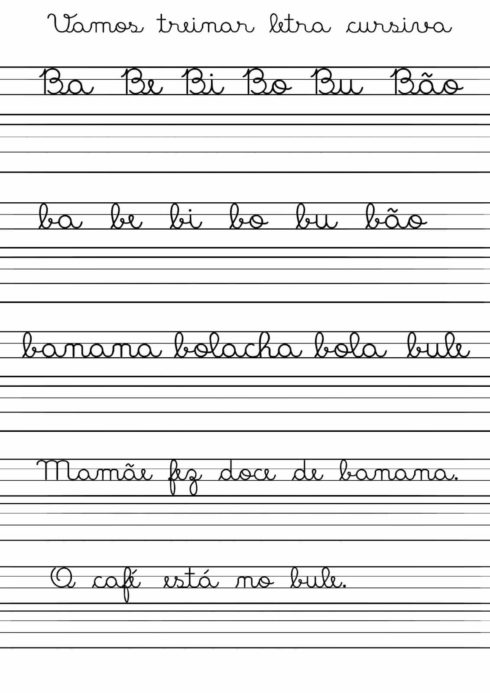 Vamos treinar letra cursiva
Ba Be Bi Bo Bu Bão
ba be bi bo bu bão
banana bolacha bola bule
Mamãe fez doce de banana.
O café está no bule.